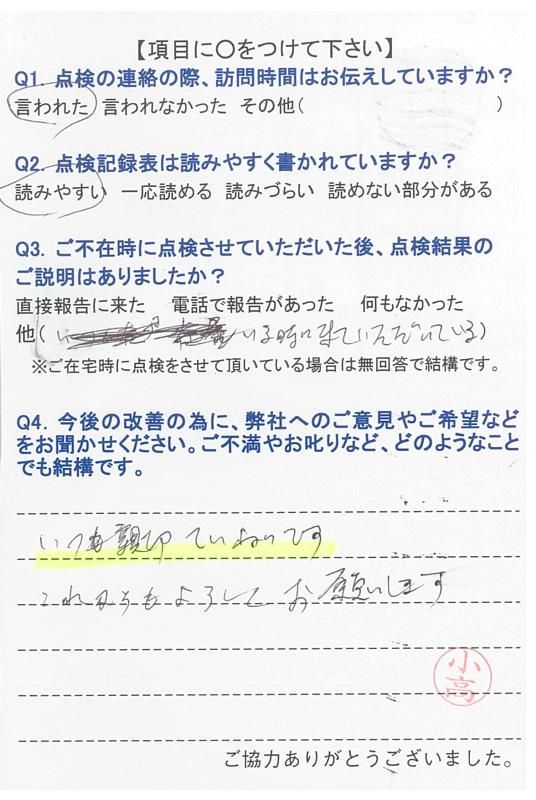 【項目に〇をつけて下さい】
Q1. 点検の連絡の際、訪問時間はお伝えしていますか？
言われた 言われなかった その他( )
Q2. 点検記録表は読みやすく書かれていますか？
読みやすい 一応読める 読みづらい 読めない部分がある
Q3. ご不在時に点検させていただいた後、点検結果の
ご説明はありましたか？
直接報告に来た 電話で報告があった 何もなかった
他( いる時に来ていただいている)
※ご在宅時に点検をさせて頂いている場合は無回答で結構です。
Q4. 今後の改善の為に、弊社へのご意見やご希望など
をお聞かせください。ご不満やお叱りなど、どのようなこと
でも結構です。
いつも親切 ていねいです
これからもよろしくお願いします
小高
ご協力ありがとうございました。